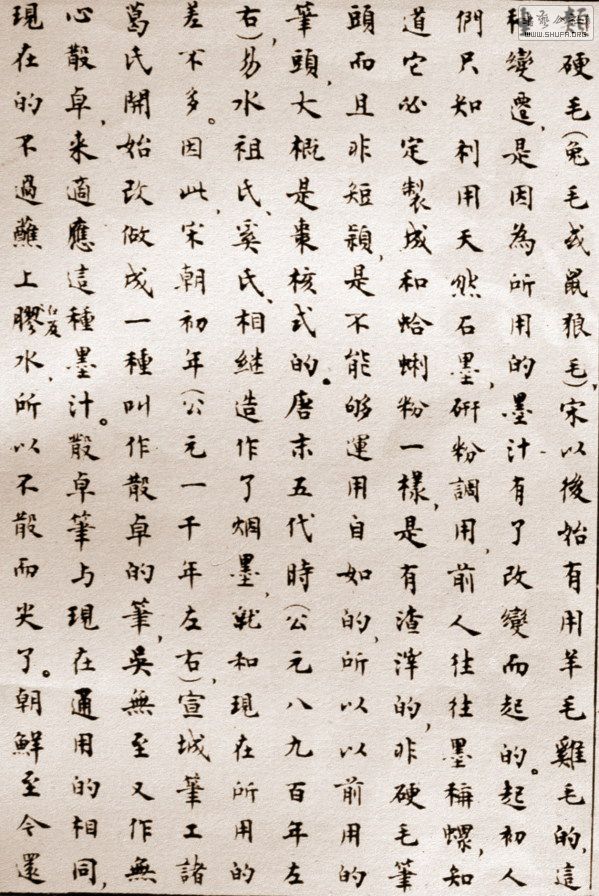 硬毛(兔毛或鼠狼毛),宋以後始有用羊毛雞毛的,這
種變遷,是因為所用的墨汁有了改變而起的。起初人
們只知利用天然石墨,研粉調用,前人往往墨稱螺,知
道它必定製成和蛤蜊粉一樣,是有渣滓的,非硬毛筆
頭而且非短穎,是不能够運用自如的,所以以前用的
筆頭,大概是棗核式的。唐末五代時(公元八九百年左
右)易水祖氏、奚氏、相繼造作了烟墨,就和現在所用的
差不多。因此,宋朝初年(公元一千年左右),宣城筆工諸
葛氏開始改做成一種叫作散卓的筆,吳無至又作無
心散卓,来適應這種墨汁。散卓筆与現在通用的相同,
現在的不過蘸上膠水,所以不散而尖了。朝鮮至今還
WWW.SHUFA.ORG